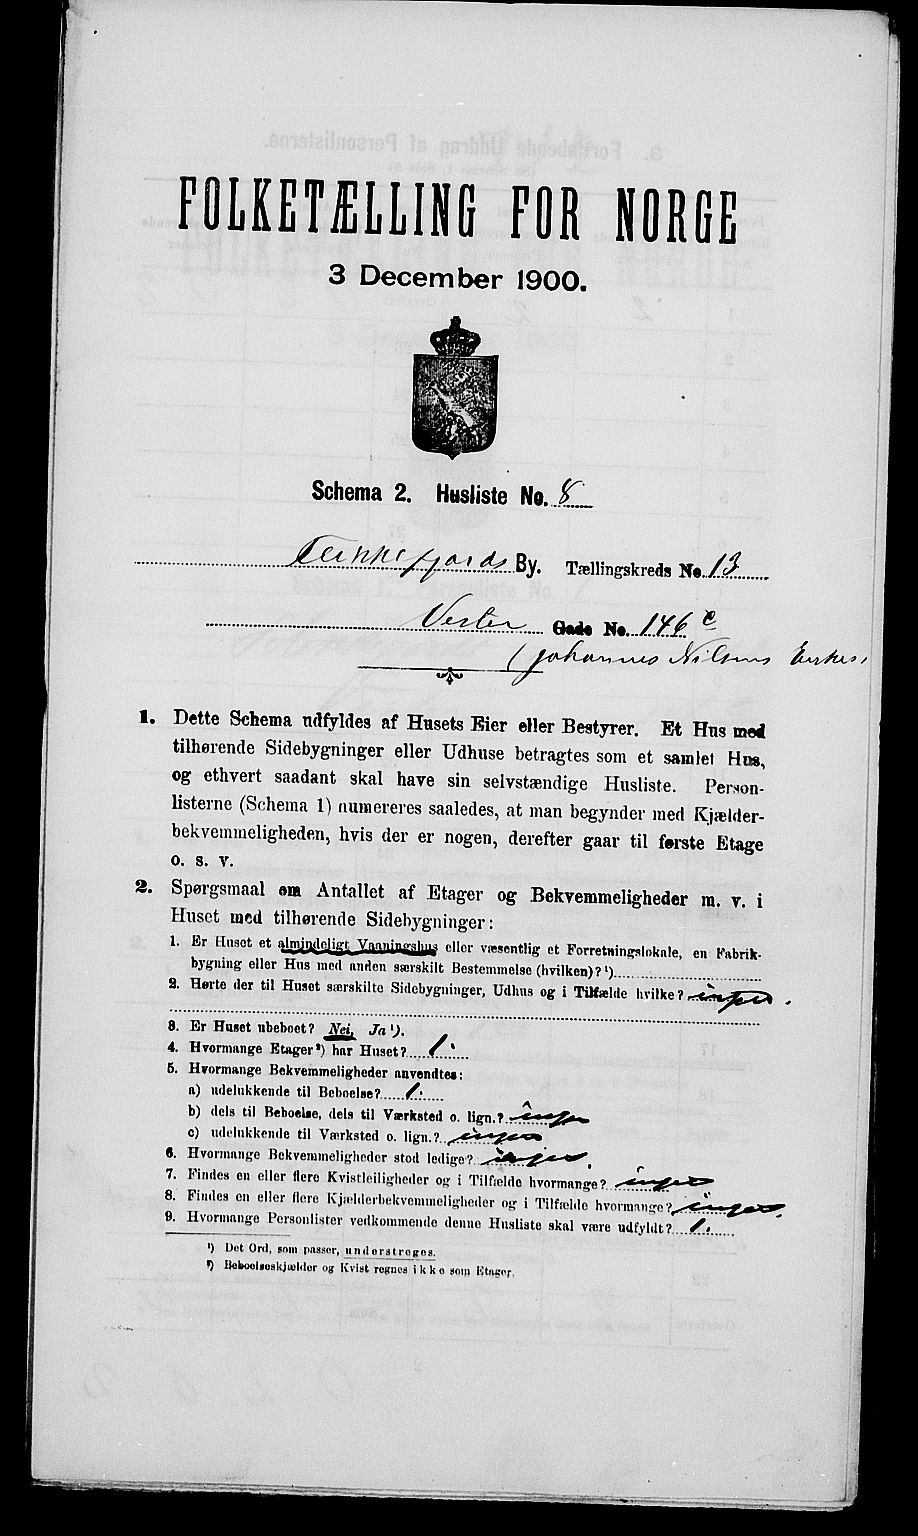 FOLKETÆLLING FOR NORGE
3 December 1900.
Schema 2. Husliste No. 8
Flekkefjords By. Tællingskreds No. 13
Vester Gade No. 146 c
(Johannes Nilsens Enkes,
1. Dette Schema udfyldes af Husets Eier eller Bestyrer. Et Hus med
tilhørende Sidebygninger eller Udhuse betragtes som et samlet Hus,
og ethvert saadant skal have sin selvstændige Husliste. Person-
listerne (Schema 1) numereres saaledes, at man begynder med Kjælder-
bekvemmeligheden, hvis der er nogen, derefter gaar til første Etage
o. s. v.
2. Spørgsmaal om Antallet af Etager og Bekvemmeligheder m. v. i
Huset med tilhørende Sidebygninger:
1. Er Huset et almindeligt Vaaningshus eller væsentlig et Forretningslokale, en Fabrik-
bygning eller Hus med anden særskilt Bestemmelse (hvilken)? ¹)
2. Hørte der til Huset særskilte Sidebygninger, Udhus og i Tilfælde hvilke? ingen.
3. Er Huset ubeboet? Nei, Ja ¹).
4. Hvormange Etager ²) har Huset? 1.
5. Hvormange Bekvemmeligheder anvendtes:
a) udelukkende til Beboelse? 1.
b) dels til Beboelse, dels til Værksted o. lign.? ingen
c) udelukkende til Værksted o. lign.? ingen
6. Hvormange Bekvemmeligheder stod ledige? ingen.
7. Findes en eller flere Kvistleiligheder og i Tilfælde hvormange? ingen
8. Findes en eller flere Kjælderbekvemmeligheder og i Tilfælde hvormange? ingen.
9. Hvormange Personlister vedkommende denne Husliste skal være udfyldt? 1.
¹) Det Ord, som passer, understreges.
²) Beboelseskjælder og Kvist regnes ikke som Etager.